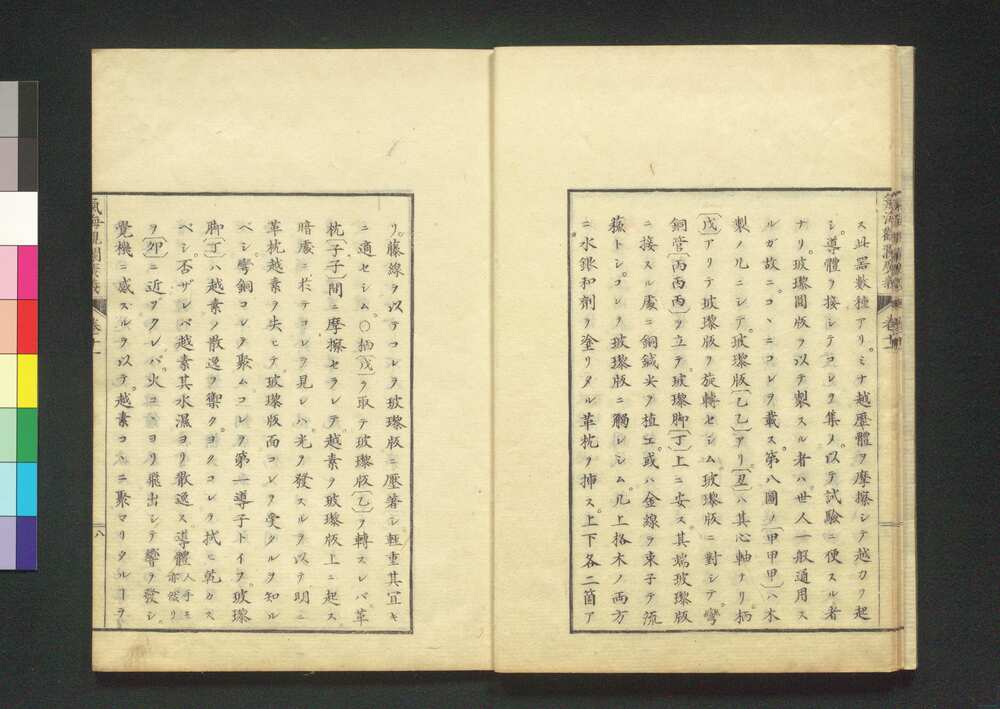 ス此器數種アリ。ミナ越壓體ヲ摩擦シテ越力ヲ起
シ。導體ヲ接シテコレヲ集メ。以テ試驗ニ便スル者
ナリ。玻瓈圓版ヲ以テ製スル者ハ。世人一般通用ス
ルガ故ニ。コヽニコレヲ載ス。第八圖ノ(甲甲甲)ハ木
製ノ几ニシテ。玻瓈版(乙乙)アリ(丑)ハ其心軸ナリ柄
(戊)アリテ玻瓈版ヲ旋轉セシム。玻瓈版ニ對シテ。彎
銅管(丙丙丙)ヲ立テ。玻瓈脚(丁)上ニ安ス。其端玻瓈版
ニ接スル處ニ銅鍼尖ヲ植エ。或ハ金線ヲ束子テ流
蘓トシ。コレヲ玻瓈版ニ觸レシム。几上挌木ノ両方
ニ水銀和劑ヲ塗リタル革枕ヲ挿ス。上下各二箇ア
リ。藤線ヲ以テコレヲ玻瓈版ニ壓著シ。輕重其宜キ
ニ適セシム。○柄(戊)ヲ取テ玻瓈版(乙)ヲ轉スレバ。革
枕(子子)間ニ摩擦セラレテ。越素ヲ玻瓈版上ニ起ス。
暗處ニ於テコレヲ見レハ。光ヲ發スルヲ以テ明ニ
革枕越素ヲ失ヒテ。玻瓈版面コレヲ受クルヲ知ル
ベシ。彎銅コレヲ聚ムコレヲ第一導子トイフ。玻瓈
脚(丁)ハ越素ノ散逸ヲ禦クヨクコレヲ拭ヒ乾カス
ベシ否ザレバ越素其水濕ヨリ散逸ス導體人手モ亦然リ
ヲ(卯)ニ近ヅクレバ。火コヽヨリ飛出シテ響ヲ發シ。
覺機ニ感スルヲ以テ。越素コヽニ聚マリタル一ヲ
氣海觀瀾廣義
卷十一
八